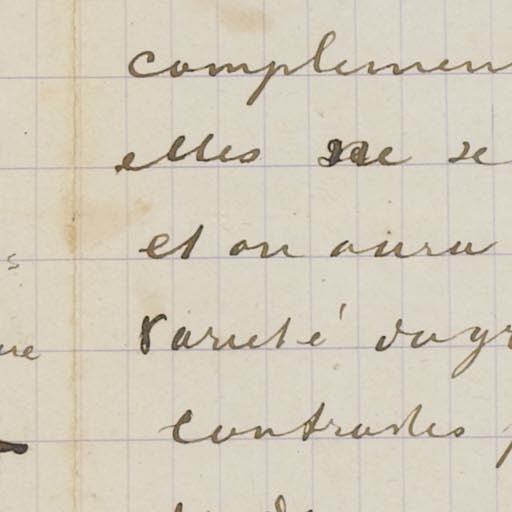 complemen
elles ne se
et on aura
varieté du gr
contrastes p